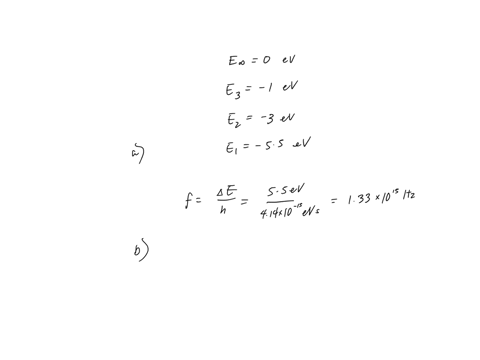 E∞ = 0 eV
E₃ = -1 eV
E₂ = -3 eV
a) E₁ = -5.5 eV
f = ΔE/h = 5.5 eV / 4.14×10⁻¹⁵ eVs = 1.33×10¹⁵ Hz
b)